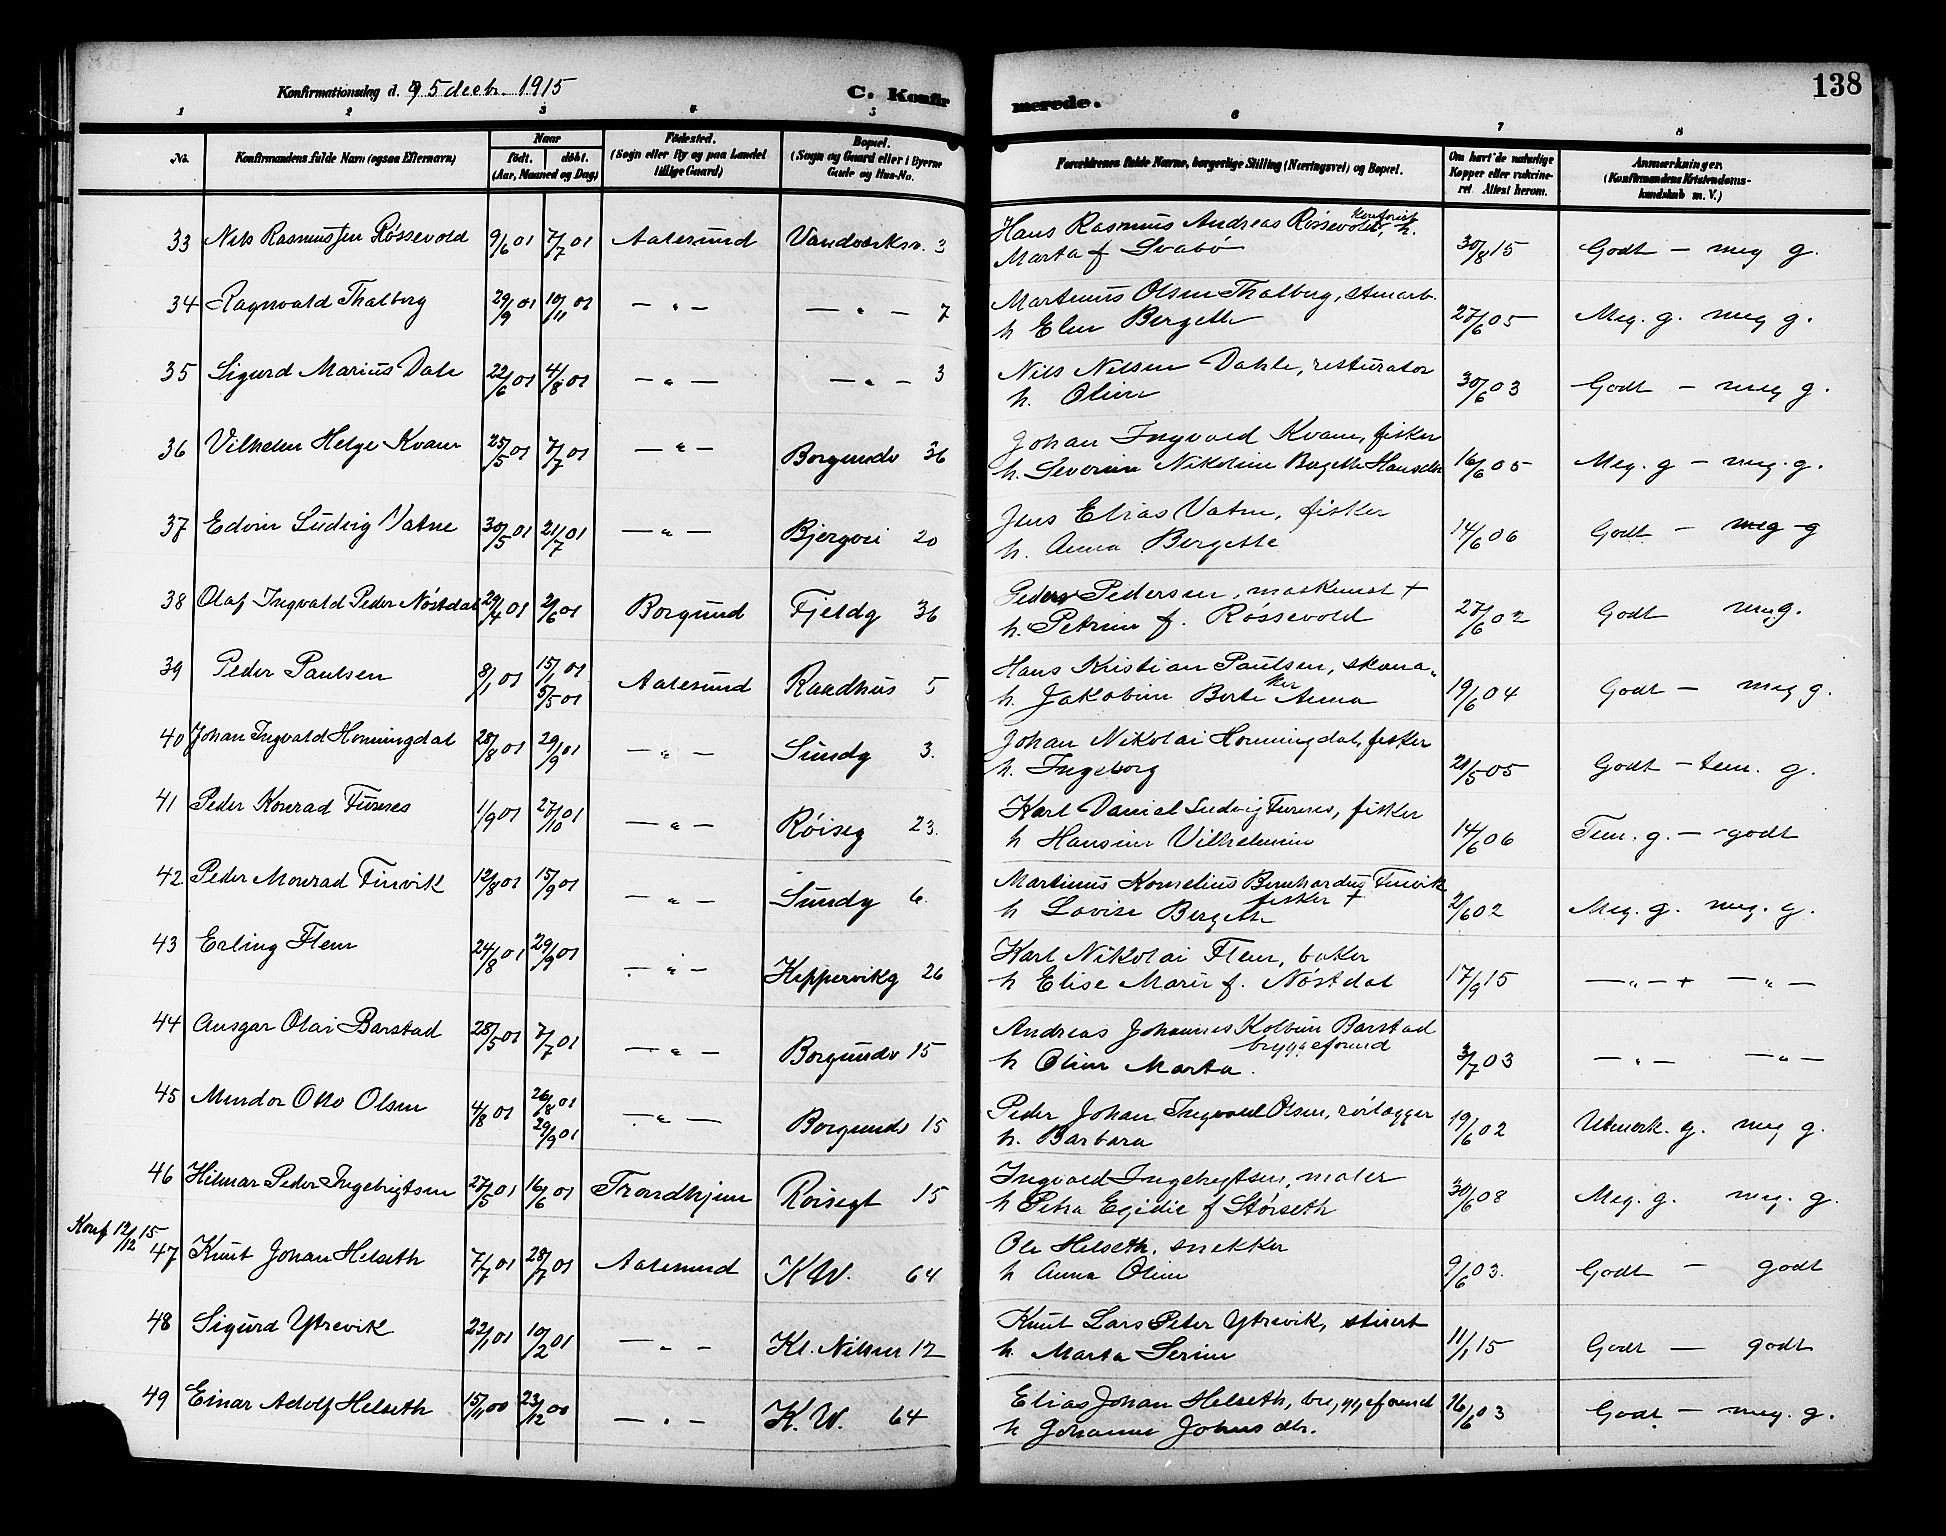 138
Konfirmationsdag d. 5 decb. 1915
C. Konfirmerede.
1 2 3 4 5 6 7 8
No. Konfirmandens fulde Navn (ogsaa Efternavn) Naar født. døbt. (Aar, Maaned og Dag) Fødested. (Sogn eller By og paa Landet tillige Gaard) Bopæl. (Sogn og Gaard eller i Byerne Gade og Hus-No. Forældrenes fulde Navne, borgerlige Stilling (Næringsvei) og Bopæl. Om havt de naturlige Kopper eller vakcineret Attest herom. Anmærkninger. (Konfirmandens Kristendomskundskab m. V.)
33 Nils Rasmussen Røssevold 9/6 01 7/7 01 Aalesund Vandværksv. 3 Hans Rasmus Andreas Røssevold, h. Marta f Svabø 30/8 15 Godt – meg g.
34 Ragnvald Thalberg 29/9 01 10/11 01 — " — — " — 7 Martinus Olsen Thalberg, stenarb. h Elen Bergette 27/6 05 Meg. g. meg g.
35 Sigurd Marius Dale 22/6 01 4/8 01 — " — — " — 3 Nils Nilsen Dahle, resturatør h. Oline 30/6 03 Godt – meg g.
36 Vilhelm Helge Kvam 25/5 01 7/7 01 — " — Borgundv 36 Johan Ingvald Kvam, fisker h. Severine Nikoline Bergette Hansdtr 16/6 05 Meg. g – meg. g.
37 Edvin Ludvig Vatne 30/5 01 21/7 01 — " — Bjergvei 20 Jens Elias Vatne, fisker h. Anna Bergette 14/6 06 Godt – meg g
38 Olaf Ingvald Peder Nøstdal 29/4 01 2/6 01 Borgund Fjeldg 36 Peder Pedersen, maskinist + h. Petrine f. Røssevold 27/6 02 Godt meg.
39 Peder Paulsen 8/1 01 15/1 01 5/5 01 Aalesund Raadhus 5 Hans Kristian Paulsen, skomaker h. Jakobine Berte Anna 19/6 04 Godt – meg g.
40 Johan Ingvald Honningdal 28/8 01 29/9 01 — " — Sundg 3. Johan Nikolai Honningdal, fisker h. Ingeborg 21/5 05 Godt – tem. g.
41 Peder Konrad Furnes 1/9 01 27/10 01 — " — Røiseg 23. Karl Daniel Ludvig Furnes, fisker h Hansine Vilhelmine 14/6 06 Tem. g. – godt
42 Peder Monrad Finvik 12/8 01 15/9 01 — " — Sundg 6. Martinus Kornelius Bernhardus Finvik fisker + h Lovise Bergette 2/6 02 Meg. g. meg. g.
43 Erling Flem 24/8 01 29/9 01 — " — Kippervikg 26 Karl Nikolai Flem, baker h Elise Marie f. Nøstdal 17/9 15 — " — + — " —
44 Ansgar Olai Barstad 28/5 01 7/7 01 — " — Borgundv 15 Andreas Johannes Kolbein Barstad bryggeformd h Oline Marta. 3/7 03 — " — — " —
45 Mindor Otto Olsen 4/8 01 26/8 01 29/9 01 — " — Borgundv 15 Peder Johan Ingvald Olsen, rörlægger h. Barbara 19/6 02 Utmerk. g. meg g.
46 Hilmar Peder Ingebrigtsen 27/5 01 16/6 01 Trondhjem Røisegt 15 Ingvald Ingebrigtsen, maler h Petra Egidie f Størseth 30/6 08 Meg. g. meg. g.
Konf 12/12 15
47 Knut Johan Helseth 7/7 01 28/7 01 Aalesund K W. 64 Ole Helseth, snekker h Anna Oline 9/6 03. Godt – godt
48 Sigurd Ytrevik 22/1 01 10/2 01 — " — Kl. Nilsen 12 Knut Lars Peter Ytrevik, stuert h. Marta Serine 11/1 15 Godt — godt
49 Einar Adolf Helseth 15/11 00 23/12 00 — " — K. W. 64 Elias Johan Helseth, bryggeformd h Johanne Johnsdtr. 16/6 03 Godt – meg. g.